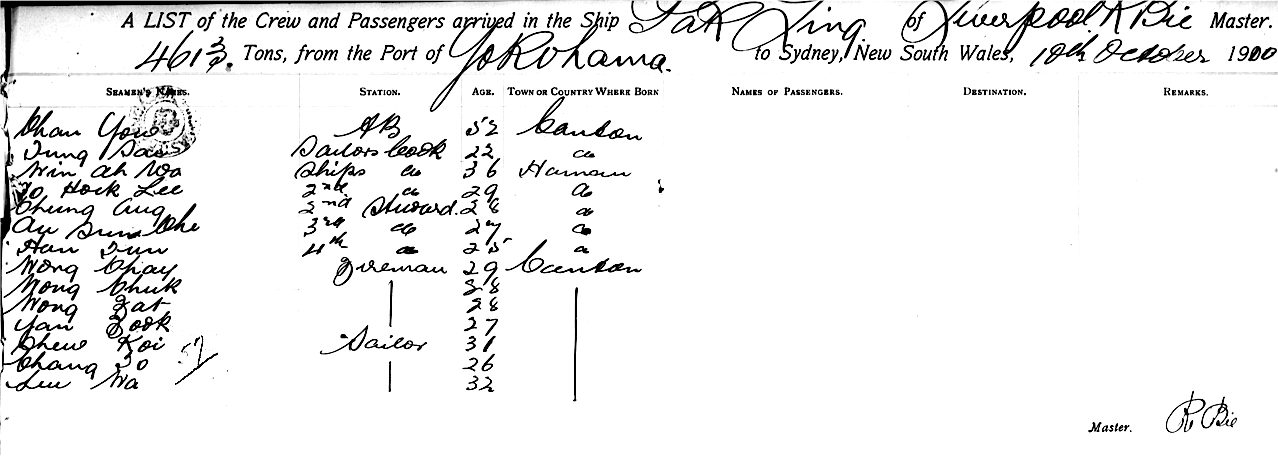 A LIST of the Crew and Passengers arrived in the Ship Tak Ling of Liverpool R Bie Master.
461 3/3. Tons, from the Port of Yokohama. to Sydney, New South Wales, 10th October 1900
SEAMEN'S NAMES. STATION. AGE. TOWN OR COUNTRY WHERE BORN NAMES OF PASSENGERS. DESTINATION. REMARKS.
Chan You AB 52 Canton
Tung Sailors Cook 22 do
Win Ah Wo Ships do 36 Hainan
Jo Hock Lee 2nd do 29 do
Chung Aug 2nd Steward. 28 do
Au Sum Che 3rd do 27 do
Han Tun 4th do 25 do
Wong Chay Fireman 29 Canton
Wong Chuk 28
Wong Fat 28
Yan Fook 27
Chew Koi Sailor 31
Chang Jo 26
Lee Wa 32
Master. R Bie